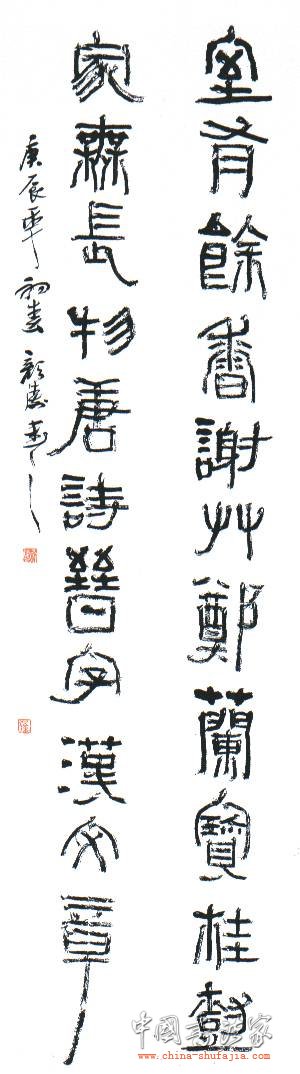 室有餘香謝艸鄭蘭竇桂樹
家無長物唐詩晉字漢文章
庚辰年初春
中國書法家
www.china-shufajia.com